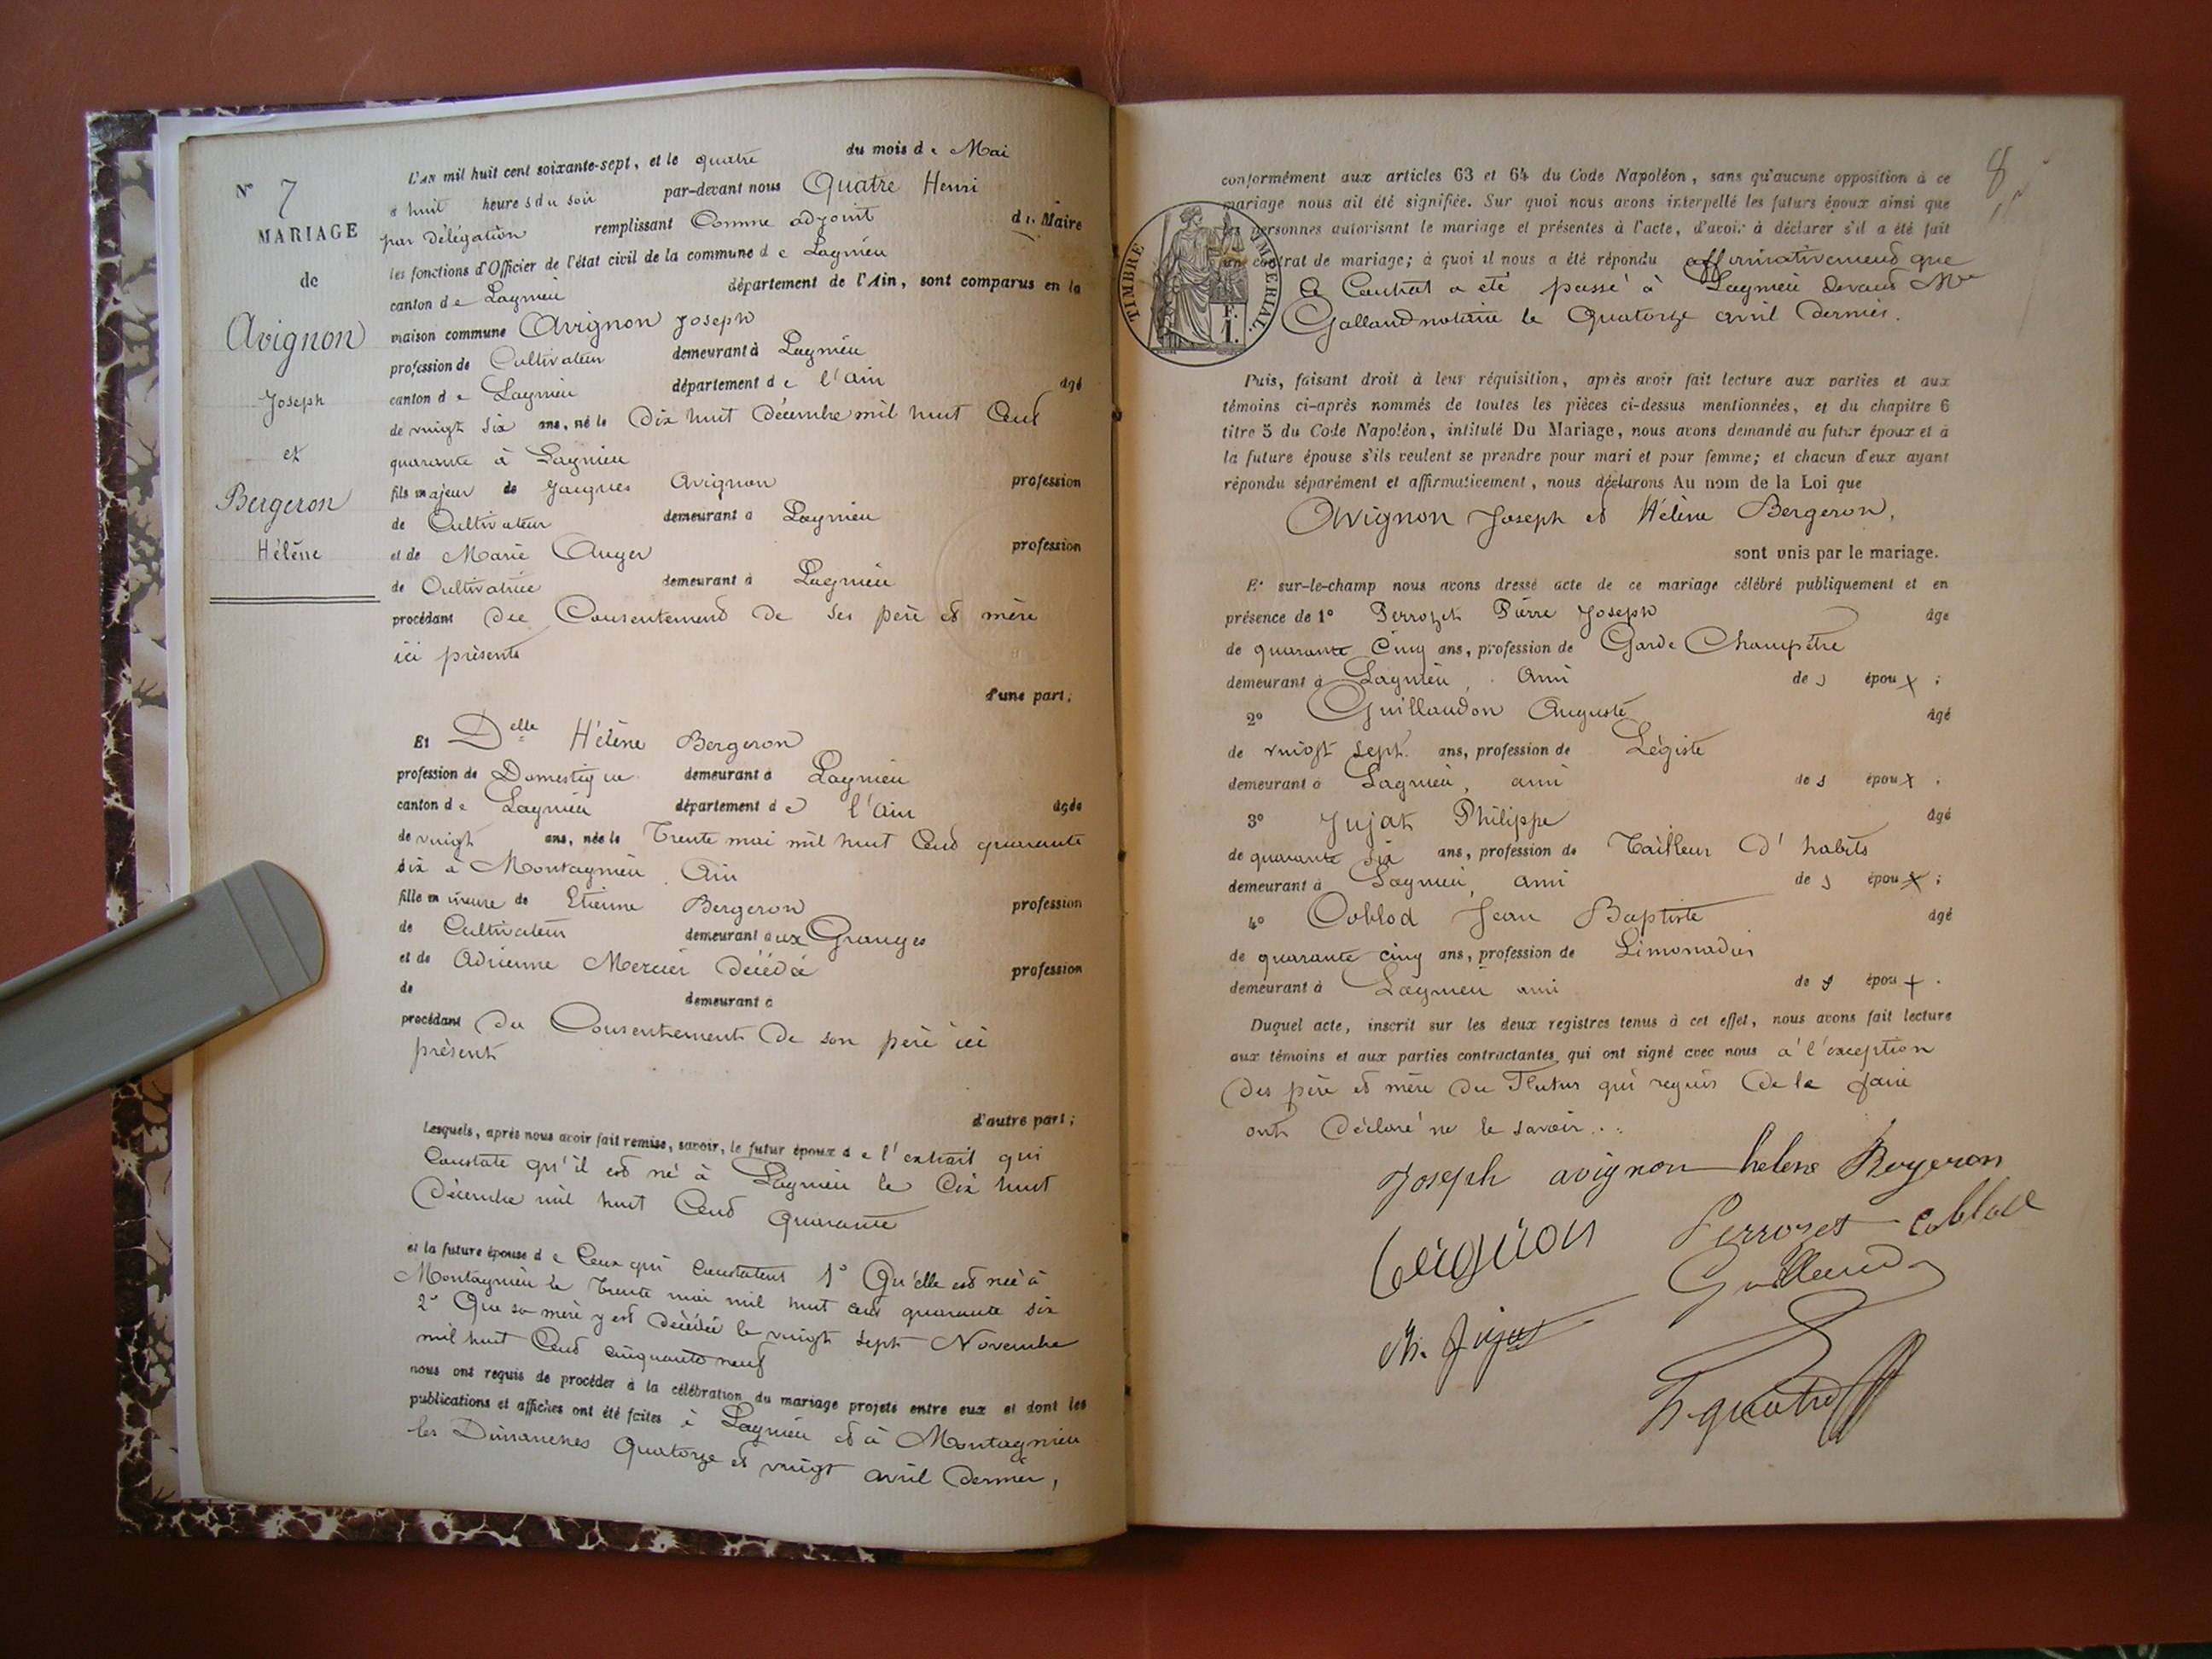 N° 7
MARIAGE
de
Avignon
Joseph
et
Bergeron
Hélène
L'AN mil huit cent soixante-sept, et le quatre du mois de Mai
à huit heures du soir par-devant nous Quatre Henri
par Délégation remplissant Comme adjoint du Maire
les fonctions d'Officier de l'état civil de la commune de Lagnieu
canton de Lagnieu département de l'Ain, sont comparus en la
maison commune Avignon Joseph
profession de Cultivateur demeurant à Lagnieu
canton de Lagnieu département de l'Ain âgé
de vingt six ans, né le Dix huit Décembre mil huit Cent
quarante à Lagnieu
fils majeur de Jacques Avignon profession
de Cultivateur demeurant à Lagnieu
et de Marie Auger profession
de Cultivatrice demeurant à Lagnieu
procédant du Consentement de ses père et mère
ici présents
d'une part;
Et Delle Hélène Bergeron
profession de Domestique demeurant à Lagnieu
canton de Lagnieu département de l'Ain âgée
de vingt ans, née le Trente mai mil huit Cent quarante
six à Montagnieu Ain
fille mineure de Etienne Bergeron profession
de Cultivateur demeurant aux Granges
et de Adrienne Mercier Décédée profession
de demeurant à
procédant du Consentement de son père ici
présent
d'autre part;
Lesquels, après nous avoir fait remise, savoir, le futur époux de l'extrait qui
Constate qu'il est né à Lagnieu le Dix huit
Décembre mil huit Cent quarante
et la future épouse de Ceux qui Constatent 1° Qu'elle est née à
Montagnieu le Trente mai mil huit cent quarante six
2° Que sa mère y est Décédée le vingt sept Novembre
mil huit Cent cinquante neuf
nous ont requis de procéder à la célébration du mariage projeté entre eux et dont les
publications et affiches ont été faites à Lagnieu et à Montagnieu
les Dimanches Quatorze et vingt avril dernier,
8
conformément aux articles 63 et 64 du Code Napoléon, sans qu'aucune opposition à ce
mariage nous ait été signifiée. Sur quoi nous avons interpellé les futurs époux ainsi que
les personnes autorisant le mariage et présentes à l'acte, d'avoir à déclarer s'il a été fait
un contrat de mariage; à quoi il nous a été répondu affirmativement que
Ce Contrat a été passé à Lagnieu devant Me
Galland notaire le Quatorze avril Dernier.
TIMBRE IMPÉRIAL
F.
1.
Puis, faisant droit à leur réquisition, après avoir fait lecture aux parties et aux
témoins ci-après nommés de toutes les pièces ci-dessus mentionnées, et du chapitre 6
titre 5 du Code Napoléon, intitulé Du Mariage, nous avons demandé au futur époux et à
la future épouse s'ils veulent se prendre pour mari et pour femme; et chacun d'eux ayant
répondu séparément et affirmativement, nous déclarons Au nom de la Loi que
Avignon Joseph et Hélène Bergeron,
sont unis par le mariage.
Et sur-le-champ nous avons dressé acte de ce mariage célébré publiquement et en
présence de 1° Perrozet Pierre Joseph âgé
de quarante Cinq ans, profession de Garde Champêtre
demeurant à Lagnieu, Ami des époux;
2° Guillaudon Auguste âgé
de vingt sept ans, profession de Légiste
demeurant à Lagnieu, ami des époux.
3° Jujat Philippe âgé
de quarante six ans, profession de Tailleur D'habits
demeurant à Lagnieu, ami des époux;
4° Coblod Jean Baptiste âgé
de quarante cinq ans, profession de Limonadier
demeurant à Lagnieu ami des époux.
Duquel acte, inscrit sur les deux registres tenus à cet effet, nous avons fait lecture
aux témoins et aux parties contractantes qui ont signé avec nous à l'exception
Des père et mère du Futur qui requis de le faire
ont Déclaré ne le savoir.
Joseph avignon helene Bergeron
Perrozet Coblod
Guillaudon
Ph. Jujat
h. quatre